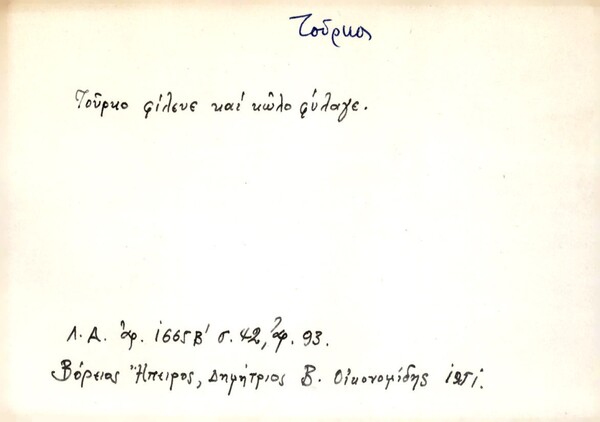 Τοῦρκος
Τοῦρκο φίλευε καί κῶλο φύλαγε.
Λ.Α. ἀρ. 1665Β' σ. 42, ἀρ. 93.
Βόρειος Ἤπειρος, Δημήτριος Β. Οἰκονομίδης 1951.